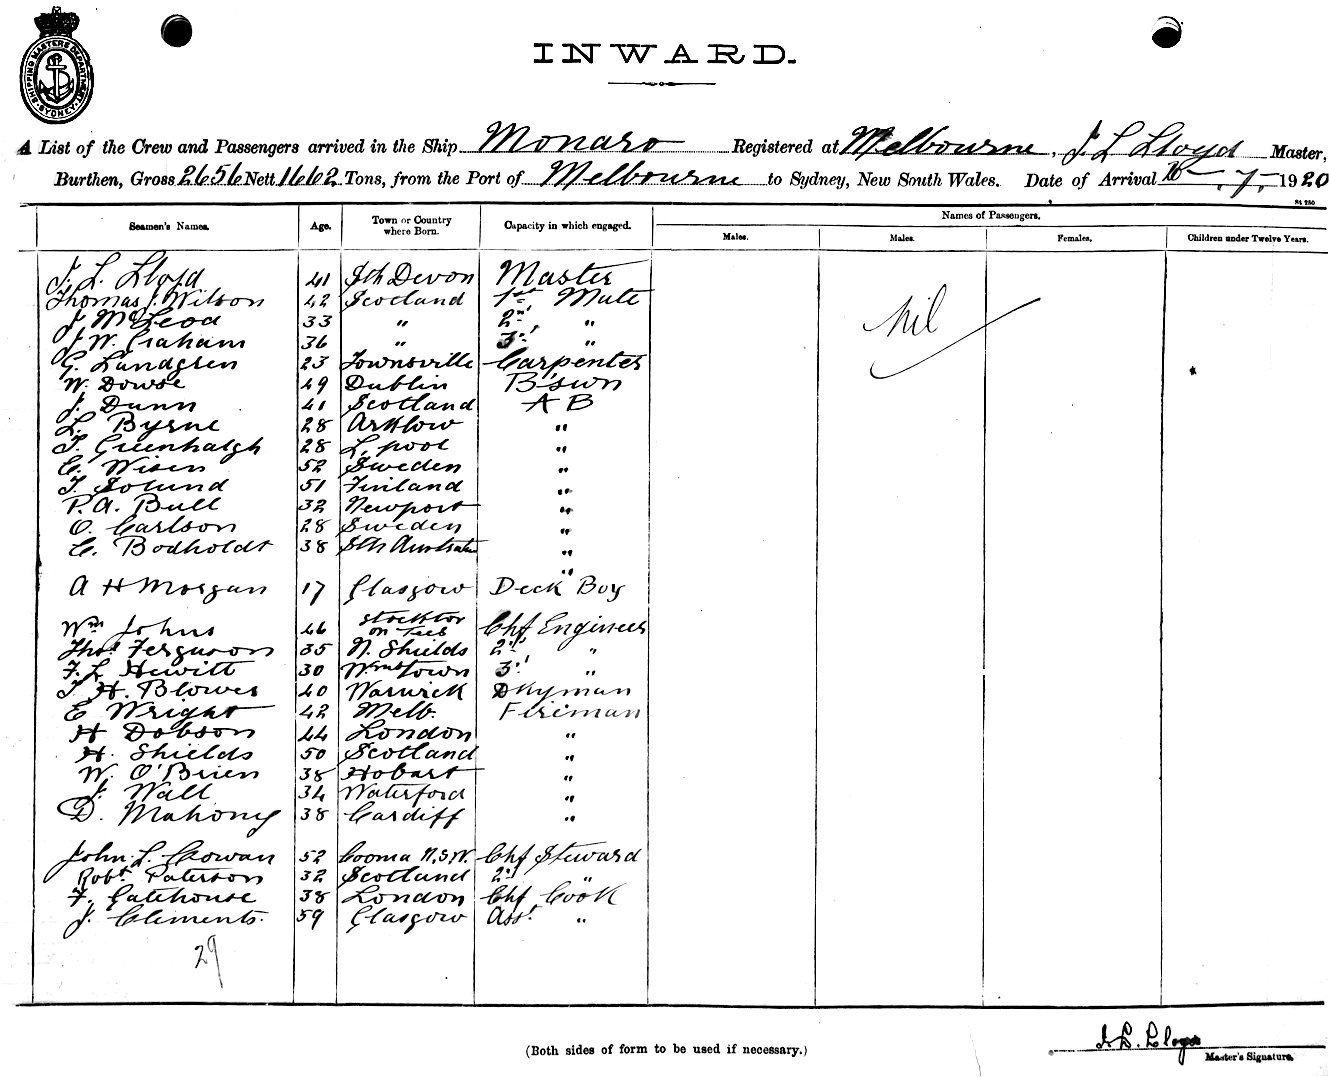 SHIPPING MASTERS DEPARTMENT SYDNEY
INWARD.
A List of the Crew and Passengers arrived in the Ship Monaro Registered at Melbourne, J. L. Lloyd Master,
Burthen, Gross 2656 Nett 1662 Tons, from the Port of Melbourne to Sydney, New South Wales. Date of Arrival 7, 1920
Names of Passengers.
Seamen's Names. Age. Town or Country where Born. Capacity in which engaged. Males. Males. Females. Children under Twelve Years.
J. L. Lloyd 41 Sth Devon Master
Thomas J. Wilson 42 Scotland 1st Mate
J McLeod 33 " 2nd " nil
J W. Graham 36 " 3rd "
G. Lundgren 23 Townsville Carpenter
W. Dowse 49 Dublin B'swn
J. Dunn 41 Scotland A B
L. Byrne 28 Arklow "
T. Greenhalgh 28 L.pool "
C. Wisen 52 Sweden "
T. Solund 51 Finland "
P. A. Bull 32 Newport "
O. Carlson 28 Sweden "
C. Bodholdt 38 Sth Australia "
"
A H Morgan 17 Glasgow Deck Boy
Wm Johns 46 Stockton on Tees Chf Engineer
Thos Ferguson 35 N. Shields 2nd "
F. L Hewitt 30 Wmstown 3rd "
T. H. Blower 40 Warwick Dkyman
E Wright 42 Melb. Fireman
H Dobson 44 London "
H. Shields 50 Scotland "
W. O'Brien 38 Hobart "
J. Wall 34 Waterford "
D. Mahony 38 Cardiff "
John L. Cowan 52 Cooma N.S.W. Chf Steward
Robt Paterson 32 Scotland 2nd "
F. Gatehouse 38 London Chf Cook
J. Clements. 59 Glasgow Asst "
29
(Both sides of form to be used if necessary.)
J. L. Lloyd
Master's Signature.